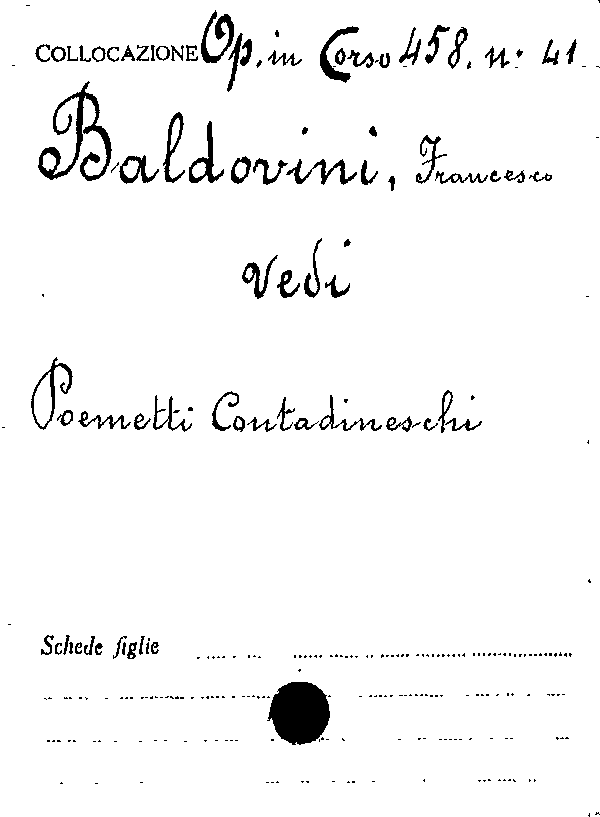 COLLOCAZIONE Op. in Corso 458. n. 41
Baldovini, Francesco
vedi
Poemetti Contadineschi
Schede figlie